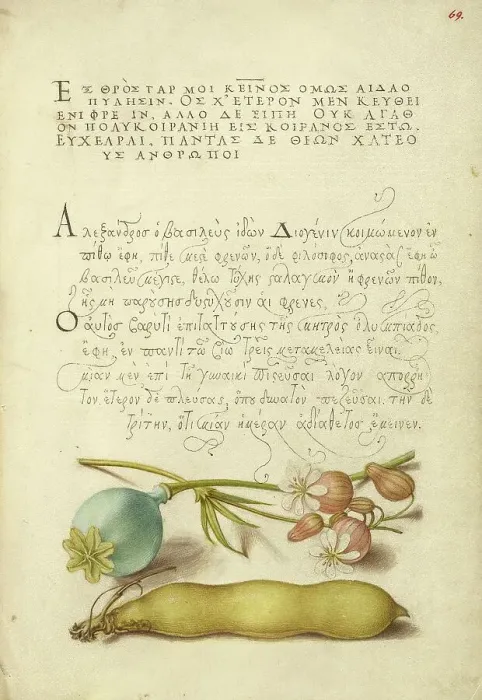 69.
ΕΣ ΘΡΟΣ ΓΑΡ ΜΟΙ ΚΕΙΝΟΣ ΟΜΩΣ ΑΙΔΑΟ
ΠΥΛΗΣΙΝ. ΟΣ Χ' ΕΤΕΡΟΝ ΜΕΝ ΚΕΥΘΕΙ
ΕΝΙ ΦΡΕ ΙΝ, ΑΛΛΟ ΔΕ ΕΙΠΗ ΟΥΚ ΑΓΑΘ
ΟΝ ΠΟΛΥΚΟΙΡΑΝΙΗ ΕΙΣ ΚΟΙΡΑΝΟΣ ΕΣΤΩ.
ΠΑΝΤΑΣ ΔΕ ΘΕΩΝ ΧΑΤΕΟ
ΥΣ ΑΝΘΡΩΠΟΙ
Αλεξανδρος ὁ βασιλεὺς ἰδὼν Διογένιν κοιμώμενον ἐν
πίθῳ ἔφη, πίθε μεςὲ φρενῶν, ὁ δὲ φιλόσοφος, ἔφη ὦ
βασιλεῦ μέγιςε, θέλω τύχης ςαλαγμὸν ἢ φρενῶν πίθον,
ἧς μὴ αἱ φρένες,
Ὁ αὐτὸς τῆς μητρὸς ὀλυμπιάδος,
ἔφη, ἐν παντὶ τῷ βίῳ τρεῖς μεταμελείας εἶναι
μίαν μὲν ἐπὶ τῇ γυναικὶ πιςεῦσαι λόγον ἀπορρη
τον. ἕτερον δὲ πλεύσας, πεζεῦσαι. τὴν δὲ
τρίτην, ὅτι μίαν ἡμέραν ἀδιάθετος ἔμεινεν.